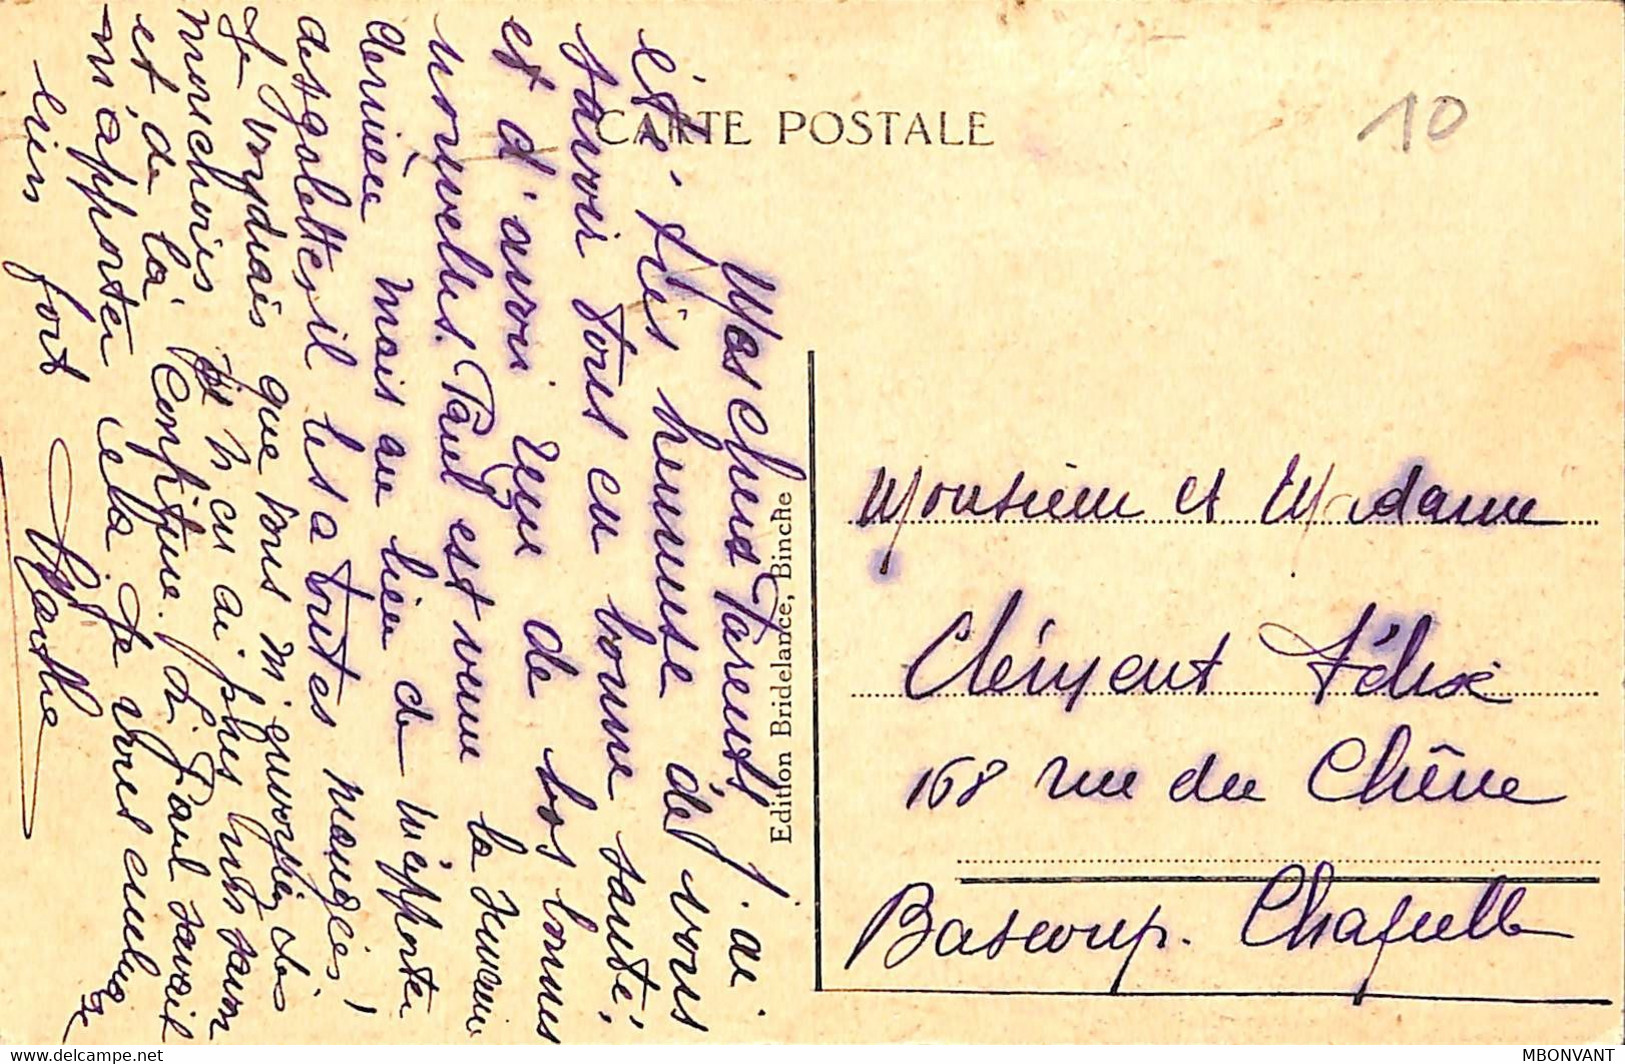 CARTE POSTALE
10
Mes chers Parents J'ai
été très heureuse de vous
savoir tous en bonne santé,
et d'avoir reçu de vos bonnes
nouvelles. Paul est venu la semaine
dernière mais au lieu de m'apporter
des galettes il les a toutes mangées!
Je voudrais que vous m'envoyiez des
mouchoirs je n'en ai plus
et de la confiture. Si Paul savait
m'apporter cela je vous embrasse
bien fort
Marthe
Edition Bridelance, Binche
Monsieur et Madame
Clément Félix
168 rue du Chêne
Bascoup. Chapelle
MBONVANT